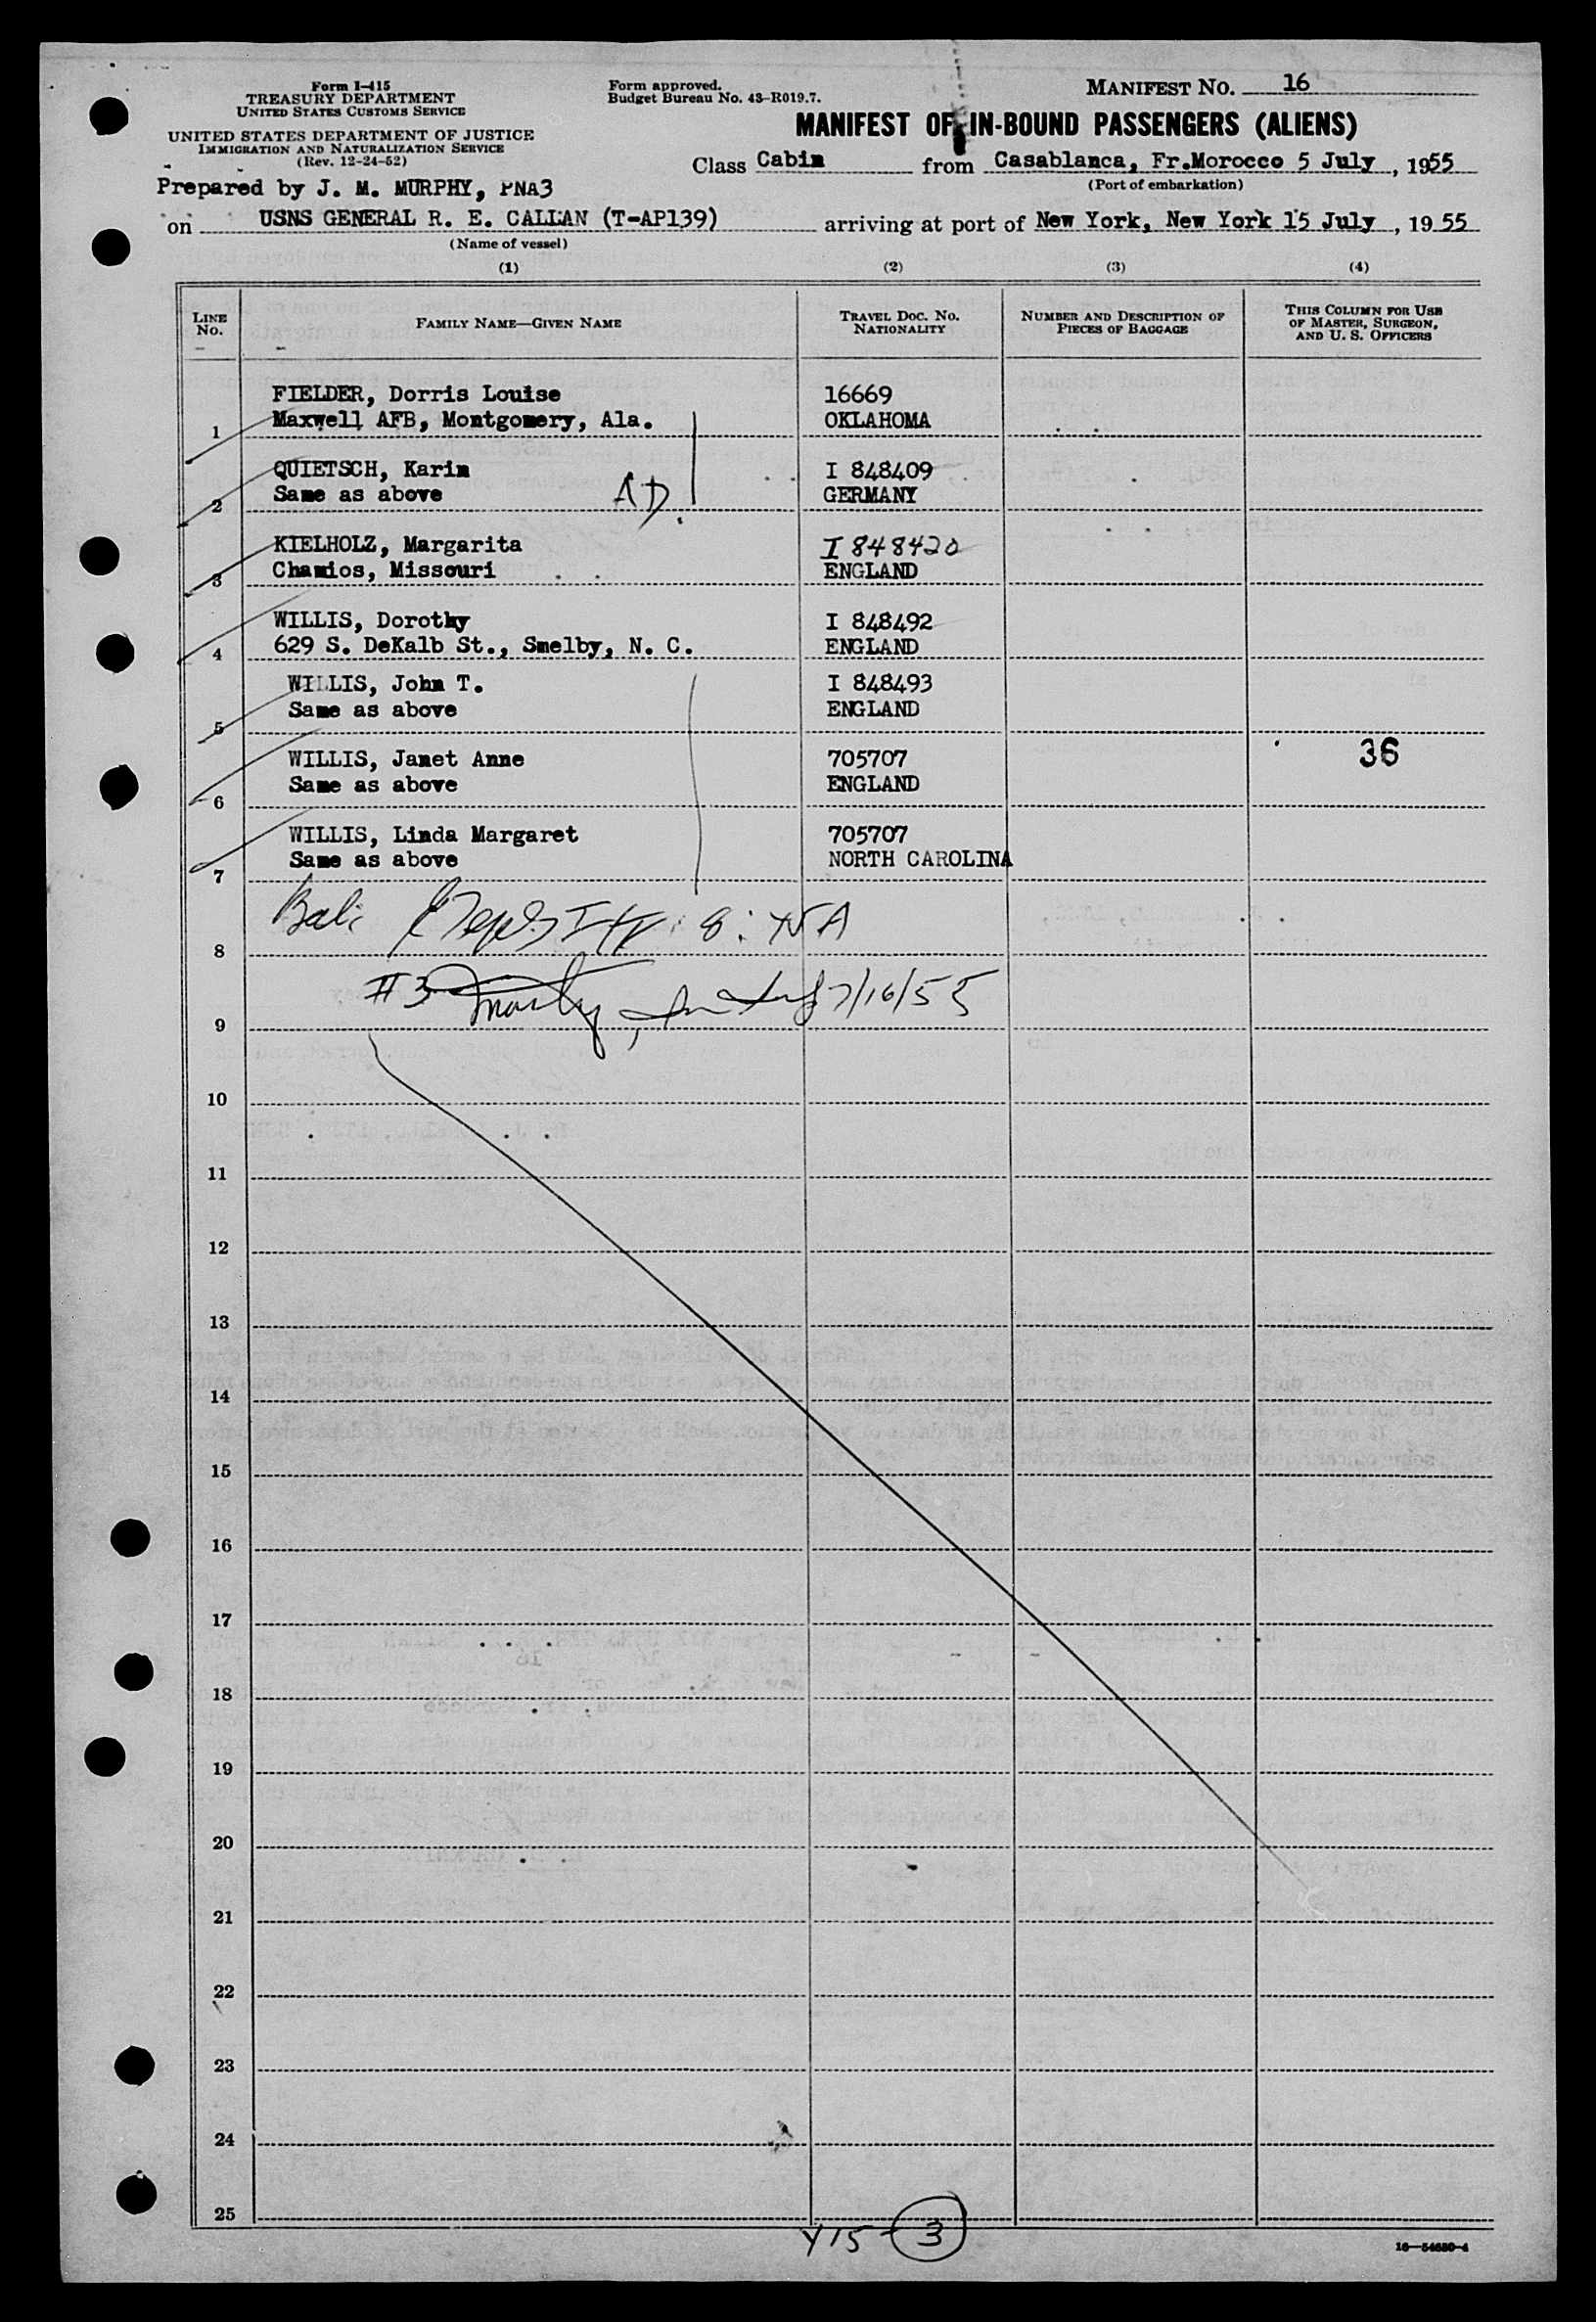 Form I-415
TREASURY DEPARTMENT
UNITED STATES CUSTOMS SERVICE
UNITED STATES DEPARTMENT OF JUSTICE
IMMIGRATION AND NATURALIZATION SERVICE
(Rev. 12-24-52)
Form approved.
Budget Bureau No. 43-R019.7.
MANIFEST NO. 16
MANIFEST OF IN-BOUND PASSENGERS (ALIENS)
Class Cabin from Casablanca, Fr.Morocco 5 July, 1955
(Port of embarkation)
Prepared by J. M. MURPHY, PNA3
on USNS GENERAL R. E. CALLAN (T-AP139) arriving at port of New York, New York 15 July, 1955
(Name of vessel)
(1) (2) (3) (4)
LINE NO. FAMILY NAME—GIVEN NAME TRAVEL DOC. NO. NATIONALITY NUMBER AND DESCRIPTION OF PIECES OF BAGGAGE THIS COLUMN FOR USE OF MASTER, SURGEON, AND U. S. OFFICERS
FIELDER, Dorris Louise 16669
1 Maxwell AFB, Montgomery, Ala. OKLAHOMA
QUIETSCH, Karin I 848409
2 Same as above AD. GERMANY
KIELHOLZ, Margarita I 848420
3 Chamios, Missouri ENGLAND
WILLIS, Dorothy I 848492
4 629 S. DeKalb St., Smelby, N. C. ENGLAND
WILLIS, John T. I 848493
5 Same as above ENGLAND
WILLIS, Janet Anne 705707 36
6 Same as above ENGLAND
WILLIS, Linda Margaret 705707
7 Same as above NORTH CAROLINA
8
#3 7/16/55
9
10
11
12
13
14
15
16
17
18
19
20
21
22
23
24
25
Y15 - 3
16—54630-4